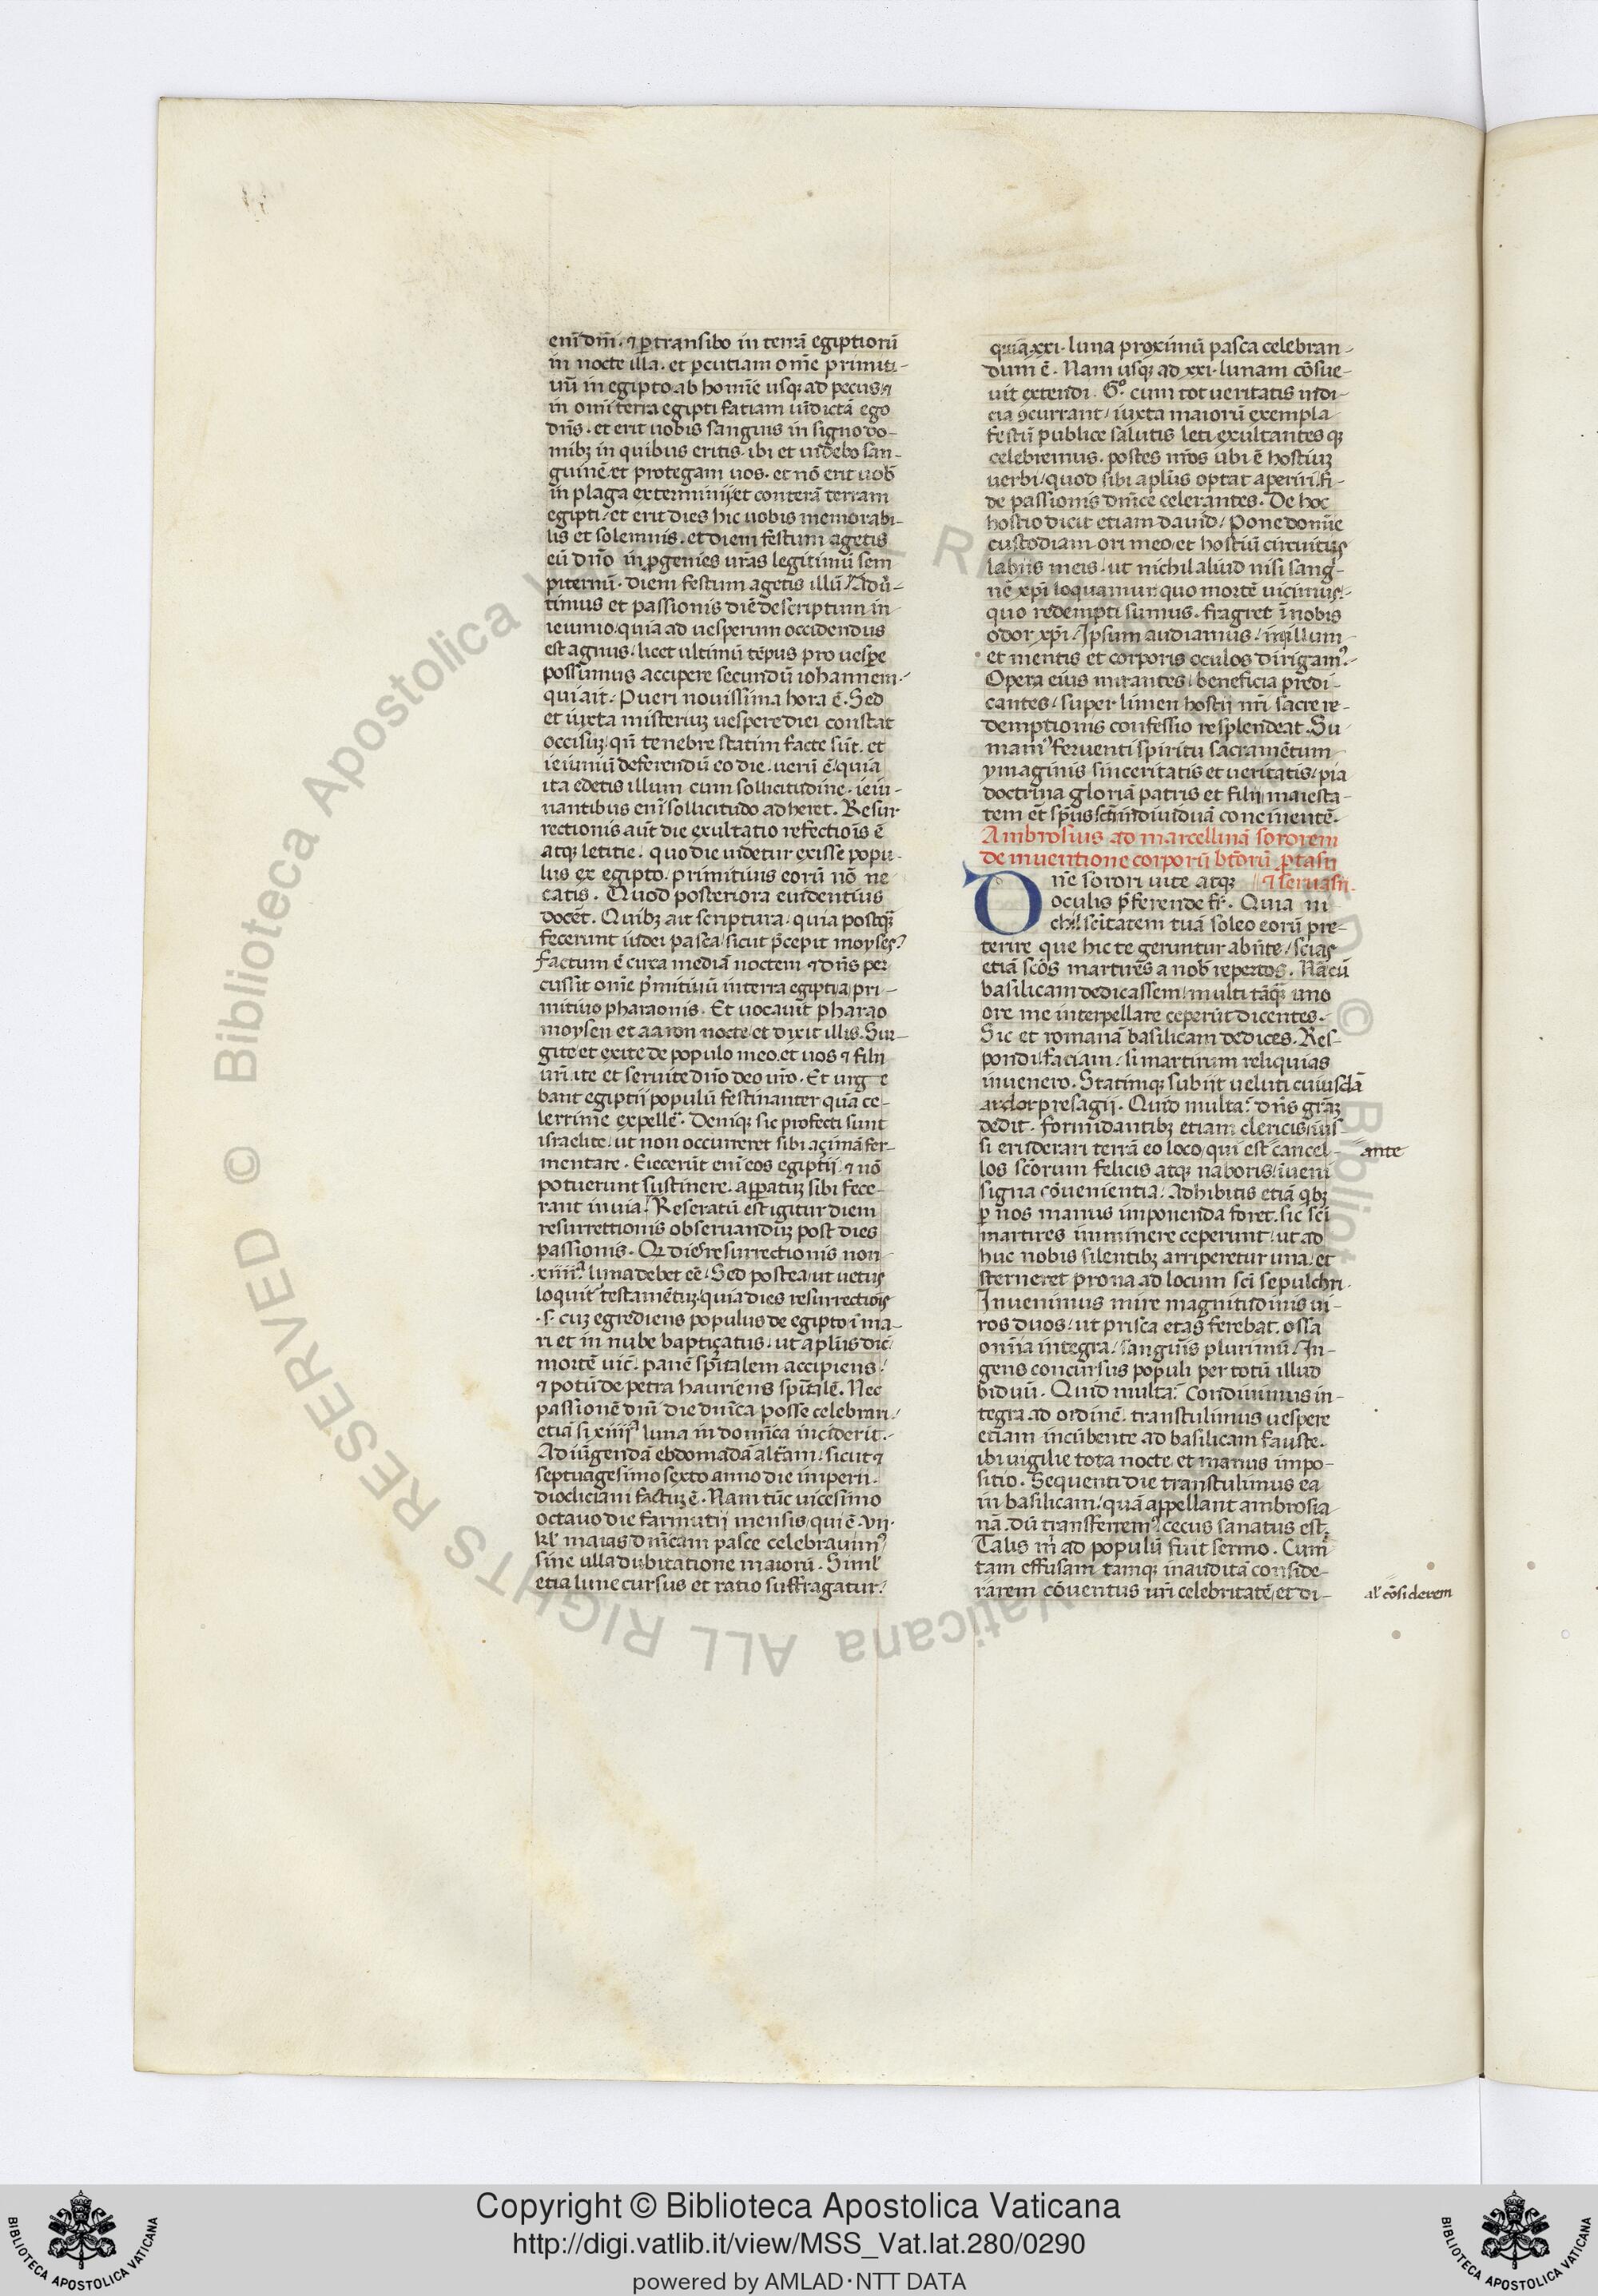 enī dn̄i · ⁊ ꝑtransibo in terrā egiptiorū
in nocte illa · et ꝑcutiam om̄e primiti-
uū in egipto ab homīe usqꝫ ad pecus · ⁊
in omī terra egipti fatiam uīdictā ego
dn̄s · et erit uobis sanguis in signo do-
mibꝫ in quibus eritis · ibi et uidebo san-
guinē · et protegam uos · et nō erit uob̄
in plaga exterminij / et conterā terram
egipti / et erit dies hic uobis memorabi-
lis et solemnis · et diem festum agetis
eū dn̄o in ꝓgenies ur̄as legitimū sem
piternū · diem festum agetis illū / Adū-
timus et passionis diē descriptum in
ieiunio / quia ad uesperum occidendus
est agnus / licet ultimū tēpus pro uespe
possumus accipere secundū iohannem ·
qui ait / Pueri nouissima hora ē · Sed
et iuxta misteriuꝫ uespere diei constat
occisuꝫ · qn̄ tenebre statim facte sūt · et
ieiuniū deferendū eo die · uerū ē / quia
ita edetis illum cum sollicitudine · ieiu-
nantibus enī sollicitudo adheret · Resur
rectionis aūt die exultatio refectiōis ē
atqꝫ letitie · quo die uidetur exisse popu-
lus ex egipto · primitiuis eorū nō ne
catis · Quod posteriora euidentius
docēt · Quibꝫ ait scriptura / quia postqꝫ̄
fecerunt iudei pasca / sicut p̄cepit moyses /
factum ē circa mediā noctem ⁊ dn̄s per
cussit om̄e p̄mitiuū in terra egiptia / pri-
mitiuo pharaonis · Et uocauit pharao
moysen et aaron nocte / et dixit illis · Sur-
gite et exite de populo meo · et uos ⁊ filij
ur̄i · ite et seruite dn̄o deo ur̄o · Et urg e
bant egiptij populū festinanter quā ce-
lerrime expellē · Deniqꝫ sic profecti sunt
israelite / ut non occurreret sibi açimā fer-
mentare · Eiecerūt enī eos egiptij · ⁊ nō
potuerunt sustinere · apparatuꝫ sibi fece-
rant in uia / Reseratū est igitur diem
resurrettionis obseruanduꝫ post dies
passionis · Qꝫ dies resurrectionis non
· xiiii ª luna debet eē / Sed postea / ut uetus
loquit᷑ testamētuꝫ · quia dies resurrectiois
· s · cuꝫ egrediens populus de egipto ī ma-
ri et in nube baptiçatus · ut apl̄us dic̄
mortē uic̄ · panē spitalem accipiens /
⁊ potū de petra hauriens spitalē · Nec
passionē dn̄i die dn̄ica posse celebrari /
etiā si xiiii ª luna in domīca inciderit ·
Ad iūgendā ebdomadā alt̄am / sicut ⁊
septuagesimo sexto anno die imperii ·
diocliciani factuꝫ ē · Nam tūc uicesimo
octauo die farmutij mensis / qui ē · vii ·
kl̄ maias dn̄icam pasce celebrauim᷒
sine ulla dubitatione maiorū · Simil̄
etia lune cursus et ratio suffragatur /
quia xxi · luna proximū pasca celebran-
dum ē · Nam usqꝫ ad xxi · lunam cōsue-
uit extendi · Gͦ cum tot ueritatis indi-
cia ꝯcurrant / iuxta maiorū exempla
festū publice salutis leti / exultantes qꝫ
celebremus · postes nr̄os ubi ē hostiuꝫ
uerbi / quod sibi apl̄us optat aperiri / fi-
de passionis dn̄ice celerantes · De hoc
hostio dicit etiam dauid / Pone domīe
custodiam ori meo / et hostiū circuitus
labijs meis / ut nichil aliud nisi sang᷑-
nē xp̄i loquamur · quo mortē uicimus /
quo redempti sumus · fragret ī nobis
odor xp̄i / Ipsum audiamus / in illum
et mentis et corporis oculos dirigam᷒ ·
Opera eius mirantes / beneficia predi-
cantes / super limen hostij nr̄i sacre re-
demptionis confessio resplendeat · Su-
mam᷒ feruenti spiritu sacramētum
ymaginis sinceritatis et ueritatis / pia
doctrina gloriā patris et filij maiesta-
tem et sp̄us sc̄i indiuiduā concinentē ·
Ambrosius ad marcellinā sororem
de inuentione corporū bt̄orū ꝓtasij
⁊ seruasij ·
Dn̄e sorori uite atqꝫ
oculis p̄ferende fr̄ · Quia ni-
chil sc̄itatem tuā soleo eorū pre-
terire que hic te geruntur abūte / scias
etiā sc̄os martires a nob̄ repertos · Nā cū
basilicam dedicassem / multi tāqꝫ̄ uno
ore me interpellare ceperūt dicentes ·
Sic et romanā basilicam dedices · Res-
pondi / faciam / si martirum reliquias
inuenero · Statimqꝫ subijt ueluti cuiusdā
ardor presagij · Quid multa? dn̄s grāꝫ
dedit · formidantibꝫ etiam clericis / ius
si eruderari terrā eo loco / qui est cancel-
ante
los sc̄orum felicis atqꝫ naboris / iueni
signa cōuenientia / Adhibitis etiā qͥbꝫ
ꝑ nos manus imponenda foret · sic sc̄i
martires iminere ceperunt / ut ad
huc nobis silentibꝫ arriperetur una / et
sterneret᷑ prona ad locum sc̄i sepulchri ·
Inuenimus mire magnitudinis ui-
ros duos / ut prisca etas ferebat · ossa
omīa integra / sanguīs plurimū / In-
gens concursus populi per totū illud
biduū · Quid multa? Condiuimus in-
tegra ad ordinē · transtulimus uespere
etiam incūbente ad basilicam fauste ·
ibi uigilie tota nocte / et manus impo-
sitio · Sequenti die transtulimus ea
in basilicam / quā appellant ambrosia-
nā · dū transferrem᷒ / cecus sanatus est ·
Talis m̄ ad populū fuit sermo · Cum
tam effusam tamqꝫ inauditā conside-
rarem cōuentus ur̄i celebritatē / et di-
al᷑ cōsiderem
Copyright © Biblioteca Apostolica Vaticana
http://digi.vatlib.it/view/MSS_Vat.lat.280/0290
powered by AMLAD·NTT DATA
BIBLIOTECA APOSTOLICA VATICANA
BIBLIOTECA APOSTOLICA VATICANA